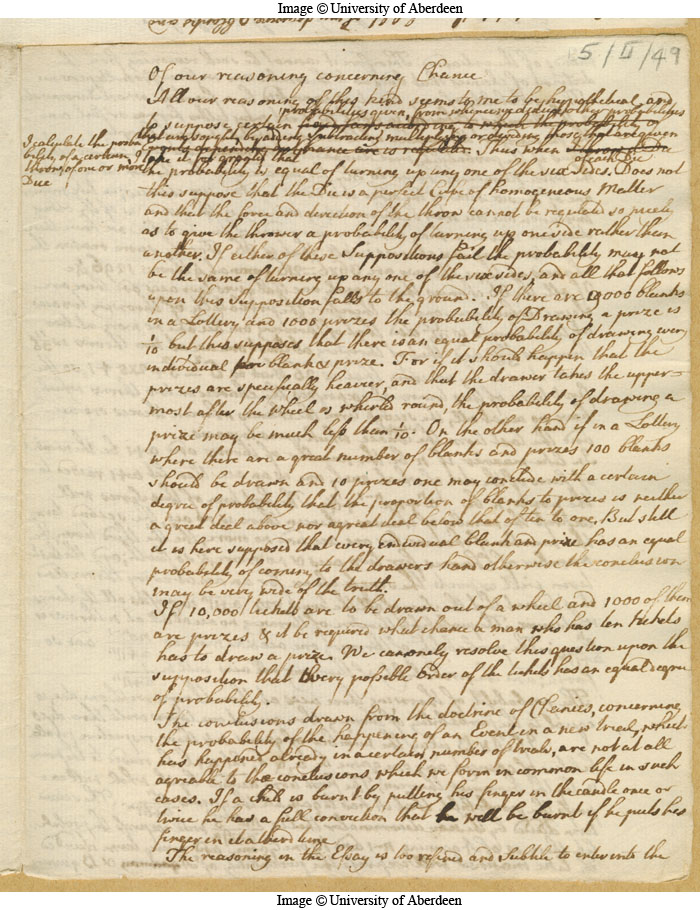 Image © University of Aberdeen
5/II/49
Of our reasoning concerning Chance
All our reasoning of this kind seems to me to be hypothetical, and
probabilities given, from whence we deduce other probabilities
to suppose certain
that are sought by adding Subtracting multiplying or dividing those that are given
Thus when I
I calculate the proba
bility of a certain
throw of one or more
Dice
take it for granted that of each Die
the probability is equal of turning up any one of the six sides. Does not
this suppose that the Die is a perfect Cube of homogeneous Matter
and that the force and direction of the throw cannot be regulated so nicely
as to give the thrower a probability of turning up one side rather than
another. If either of these Suppositions fail the probability may not
be the same of turning up any one of the six sides, and all that follows
upon this Supposition falls to the ground. If there are 9000 blanks
in a Lottery and 1000 prizes the probability of Drawing a prize is
1/10 but this supposes that there is an equal probability of drawing every
individual blank & prize. For if it should happen that the
prizes are specifically heavier, and that the drawer takes the upper-
most after the wheel is whirled round, the probability of drawing a
prize may be much less than 1/10. On the other hand if in a Lottery
where there are a great number of blanks and prizes 100 blanks
should be drawn and 10 prizes one may conclude with a certain
degree of probability that the proportion of blanks to prizes is neither
a great deal above nor a great deal below that of ten to one. But still
it is here supposed that every individual blank and prize has an equal
probability of coming to the drawers hand otherwise the conclusion
may be very wide of the truth.
If 10,000 tickets are to be drawn out of a wheel and 1000 of them
are prizes & it be required what chance a man who has ten tickets
has to draw a prize. We can onely resolve this question upon the
supposition that Every possible order of the tickets has an equal degree
of probability.
The conclusions drawn from the doctrine of Chances, concerning
the probability of the happening of an Event in a new trial, which
has happened already in a certain number of trials, are not at all
agreable to the conclusions which we form in common life in such
cases. If a child is burnt by putting his finger in the candle once or
twice he has a full conviction that he will be burnt if he puts his
finger in it a third time
The reasoning in the Essay is too refined and subtile to enter into the
Image © University of Aberdeen